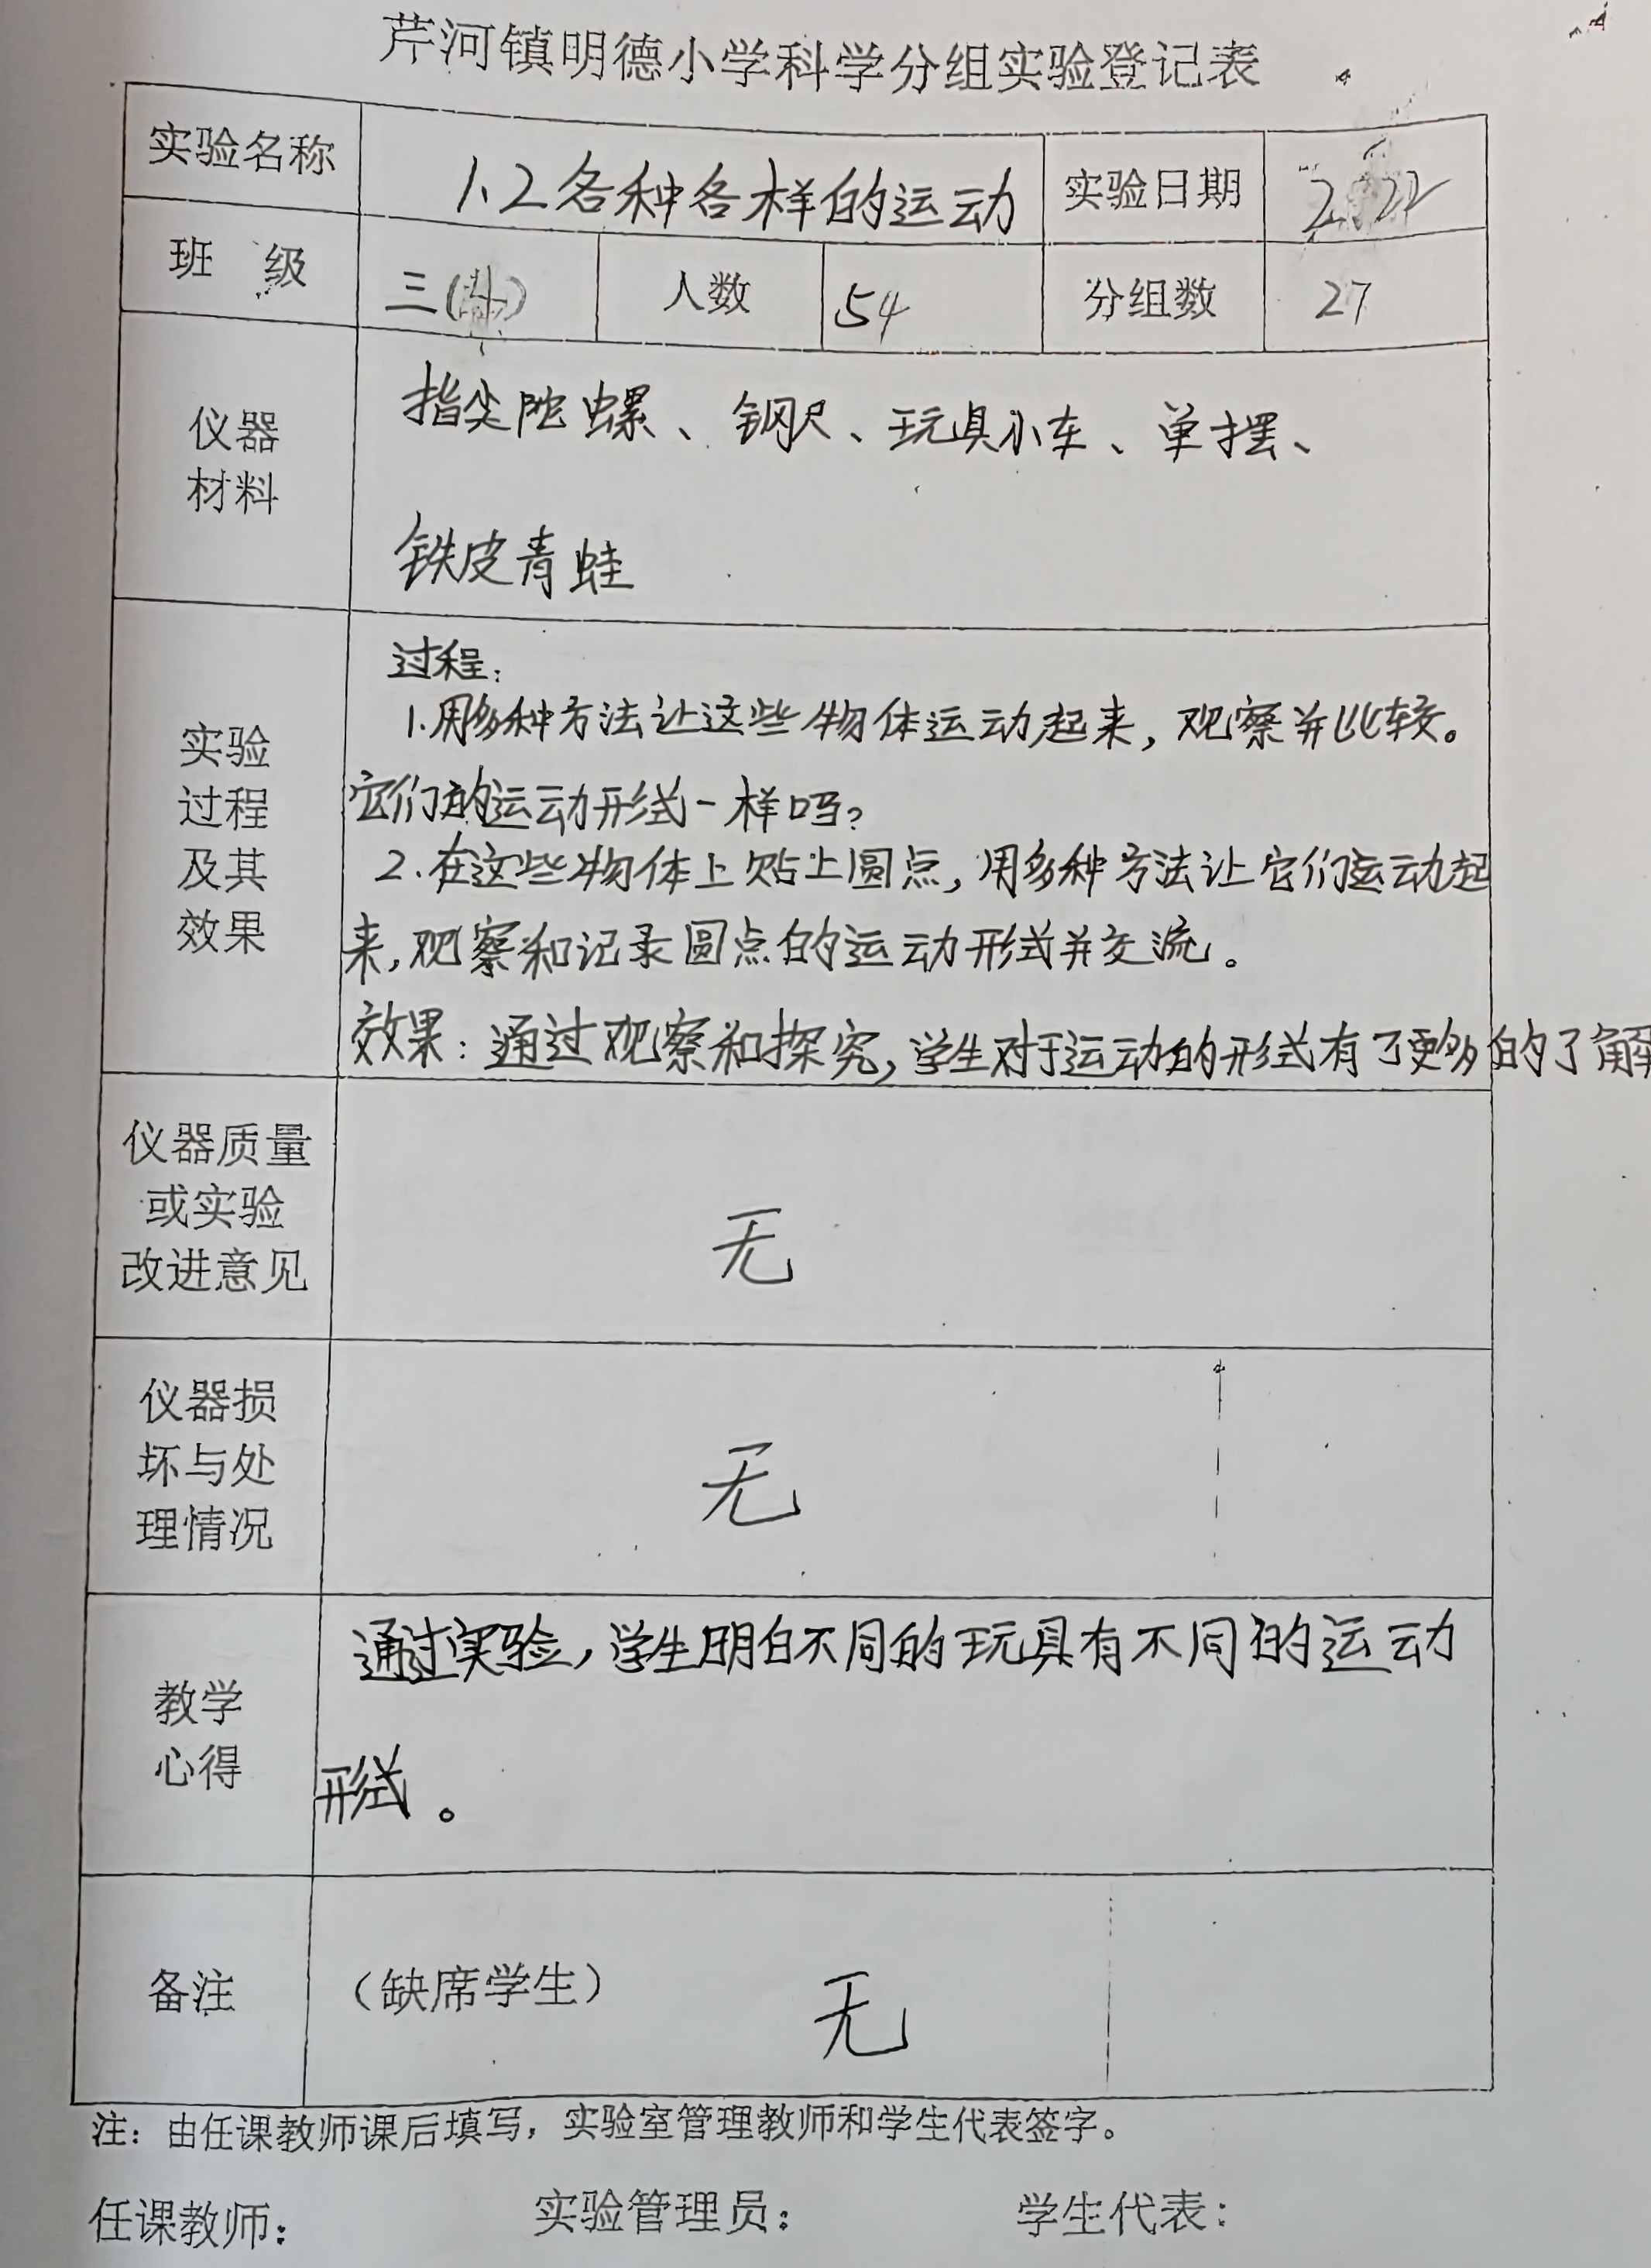 芹河镇明德小学科学分组实验登记表
实验名称 1.2各种各样的运动 实验日期
班 级 三( ) 人数 54 分组数 27
仪器
材料
指尖陀螺、钢尺、玩具小车、单摆、
铁皮青蛙
实验
过程
及其
效果
过程:
1.用多种方法让这些物体运动起来,观察并比较。
它们的运动形式一样吗?
2.在这些物体上贴上圆点,用多种方法让它们运动起
来,观察和记录圆点的运动形式并交流。
效果:通过观察和探究,学生对于运动的形式有了更多的了解
仪器质量
或实验
改进意见
无
仪器损
坏与处
理情况
无
教学
心得
通过实验,学生明白不同的玩具有不同的运动
形式。
备注 (缺席学生) 无
注:由任课教师课后填写,实验室管理教师和学生代表签字。
任课教师: 实验管理员: 学生代表: